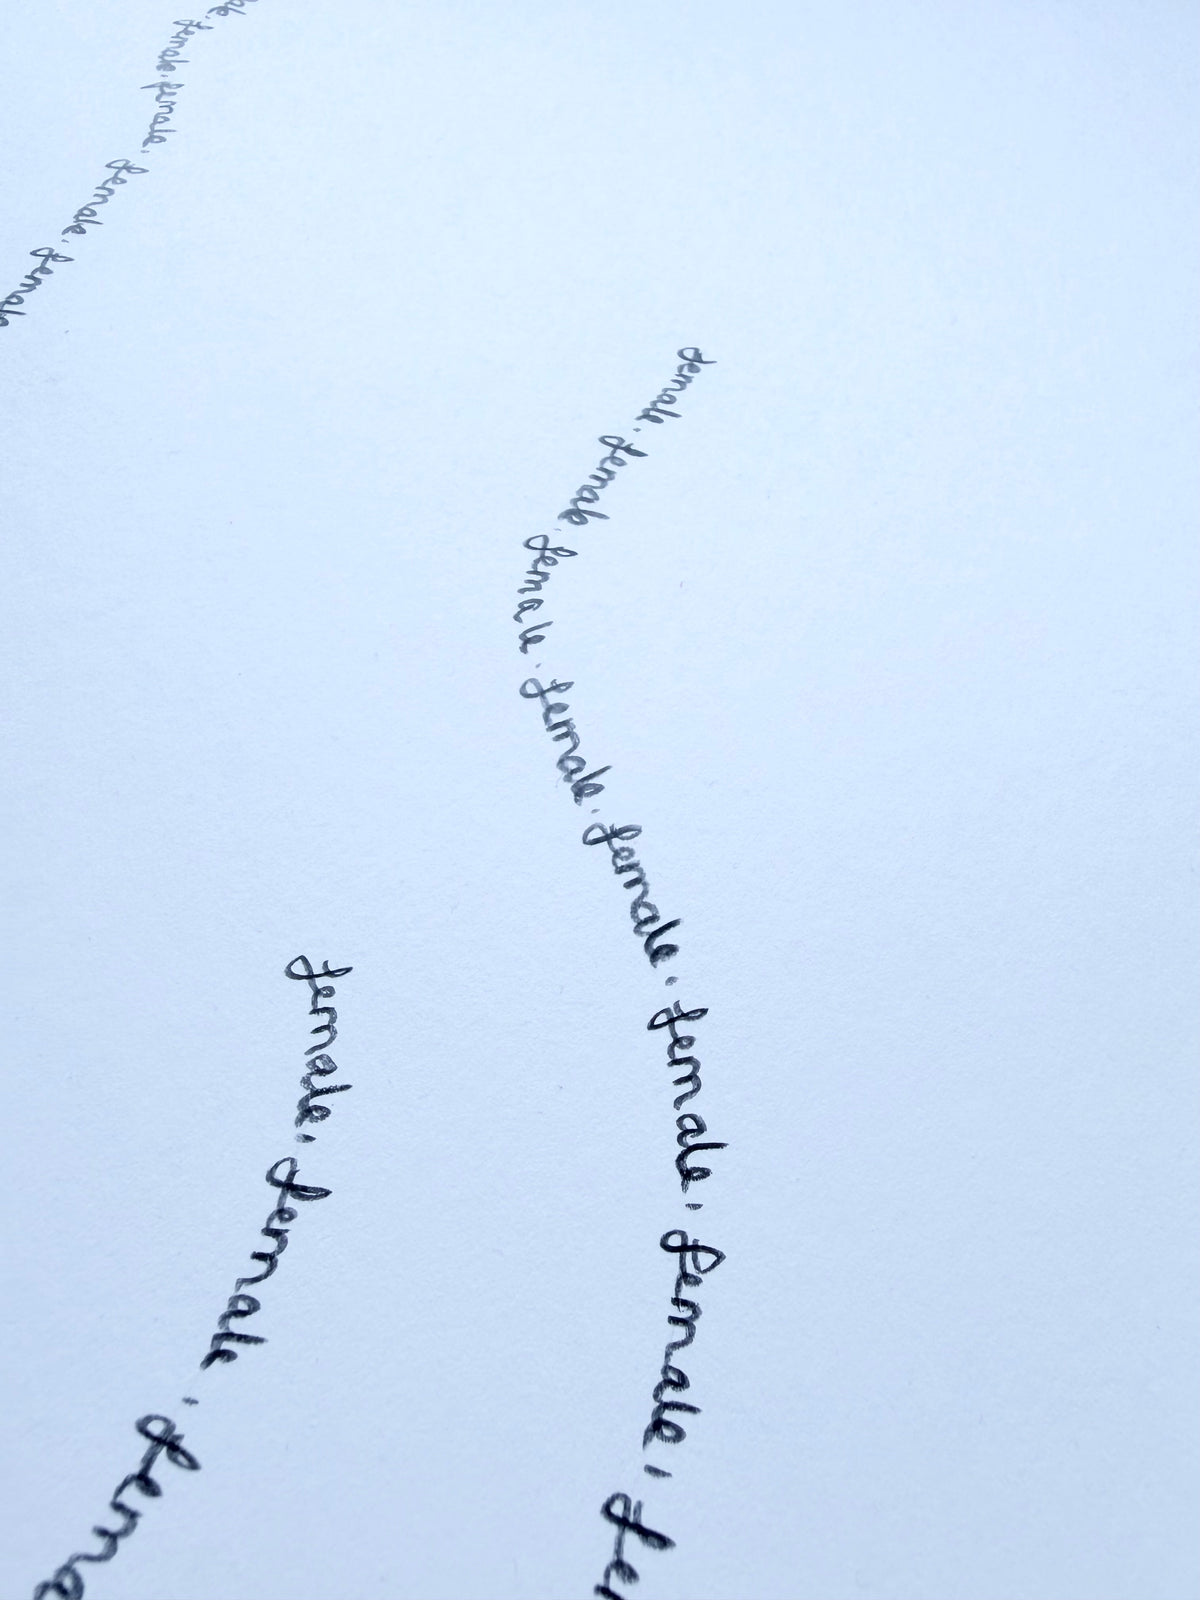 ale, female, female, female, female
female, female, female, female, female, female, female, fe
female, female, fema